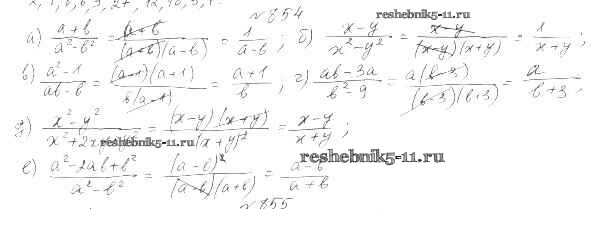 №854
а) (a+b)/(a²-b²) = (a+b)/((a+b)(a-b)) = 1/(a-b) ; б) (x-y)/(x²-y²) = (x-y)/((x-y)(x+y)) = 1/(x+y) ;
в) (a²-1)/(ab-b) = ((a-1)(a+1))/(b(a-1)) = (a+1)/b ; г) (ab-3a)/(b²-9) = a(b-3)/((b-3)(b+3)) = a/(b+3) ;
д) (x²-y²)/(x²+2xy+y²) = ((x-y)(x+y))/(x+y)² = (x-y)/(x+y) ;
е) (a²-2ab+b²)/(a²-b²) = (a-b)²/((a-b)(a+b)) = (a-b)/(a+b)
№855
reshebnik5-11.ru
reshebnik5-11.ru
reshebnik5-11.ru